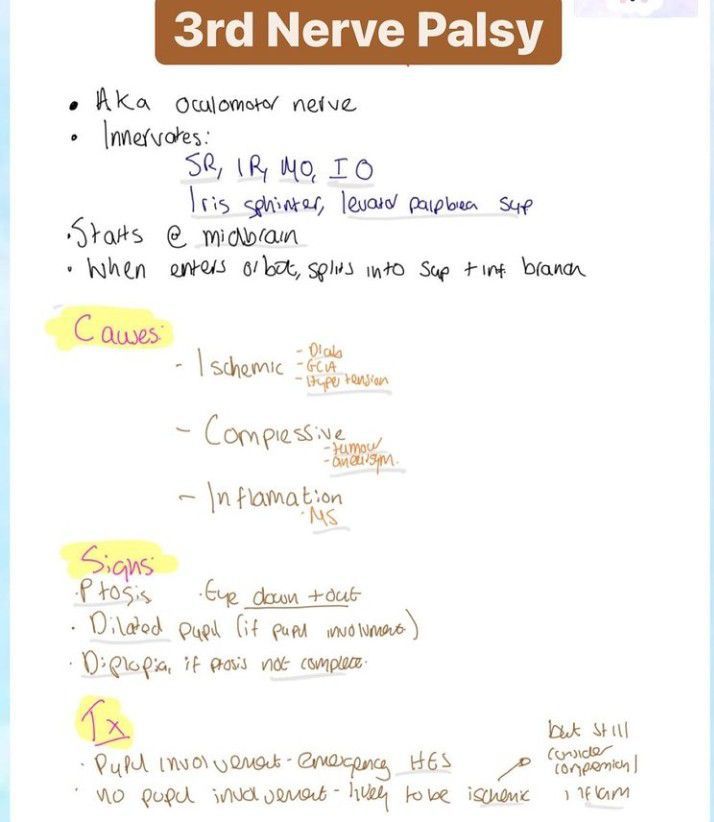 3rd Nerve Palsy
• Aka oculomotor nerve
• Innervates:
SR, IR, MO, IO
Iris sphinter, levator palpbrea sup
• Starts @ midbrain
• When enters orbot, splits into sup + inf. branch
Causes:
- Ischemic
- Diab
- GCA
- Hypertension
- Compressive
- tumour
- aneurism.
- Inflamation
· MS
Signs
· Ptosis · Eye down + out
· Dilated pupil (if pupil involvment)
· Diplopia, if ptosis not complete.
Tx
· Pupil involvement - emergency HES
· no pupil involvement - likely to be ischemic
but still
consider
compression /
inflam